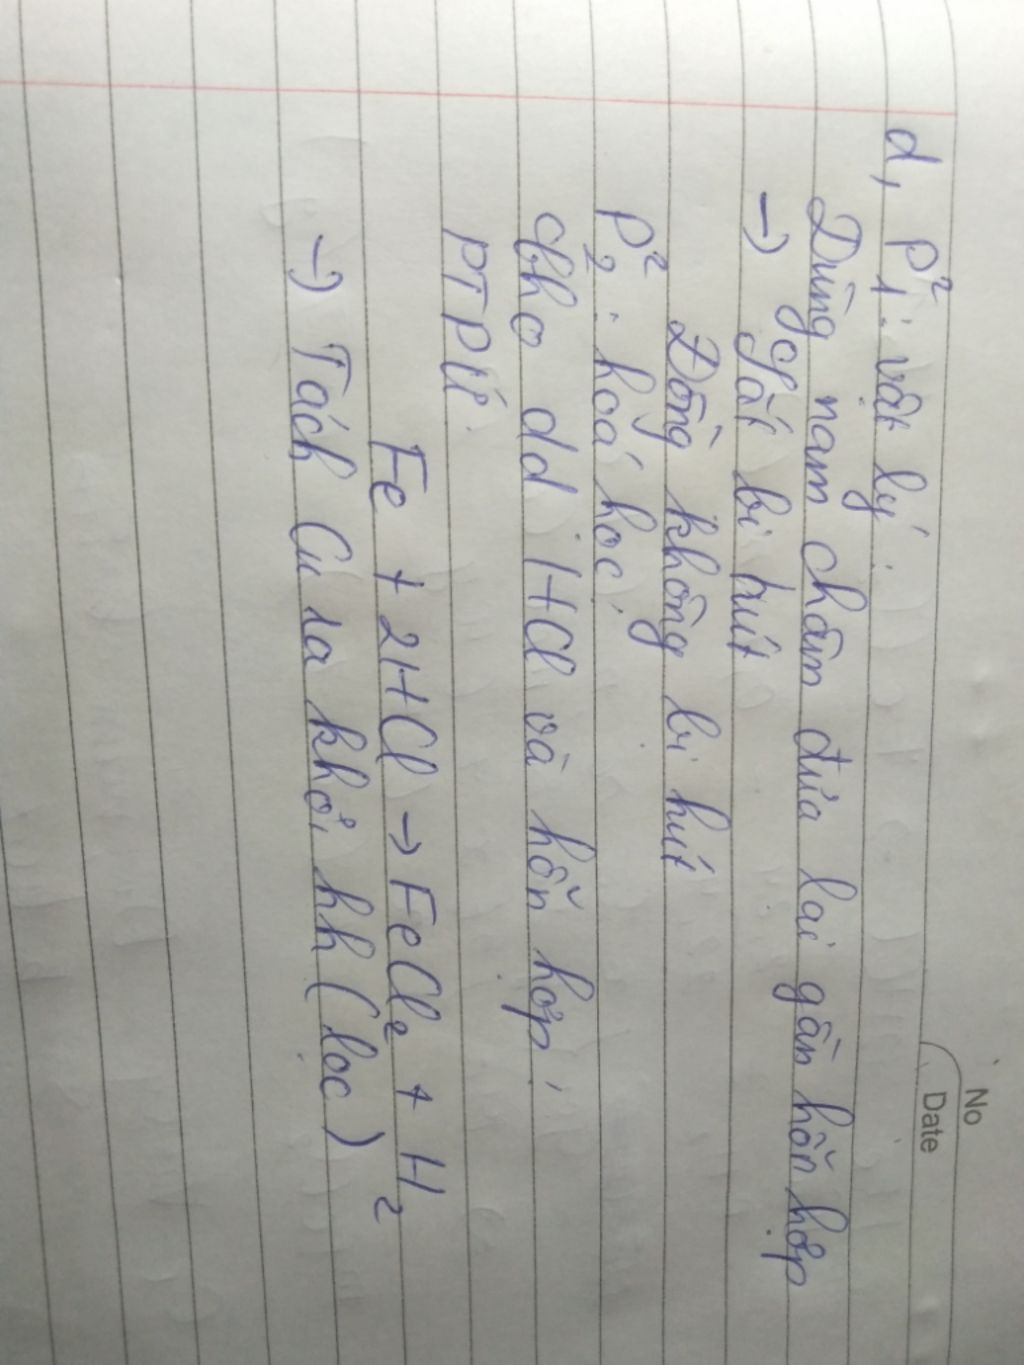 No
Date
d, P²1: vật lý:
Dùng nam châm đưa lại gần hỗn hợp
→ Sắt bị hút
Đồng không bị hút
P²2: hoá học:
Cho dd HCl và hỗn hợp:
PTPƯ:
Fe + 2HCl → FeCl2 + H2
→ Tách Cu ra khỏi hh (lọc)